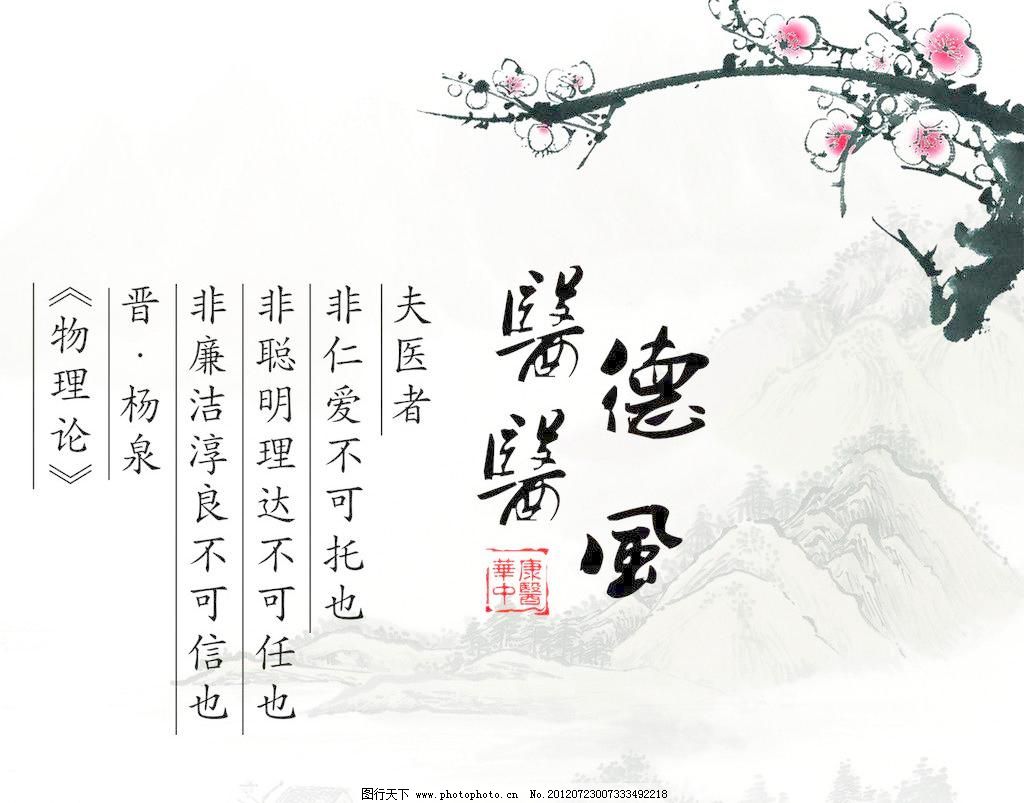 醫德
醫風
康醫
華中
夫医者
非仁爱不可托也
非聪明理达不可任也
非廉洁淳良不可信也
晋·杨泉
《物理论》
图行天下 www.photophoto.cn No.20120723007333492218